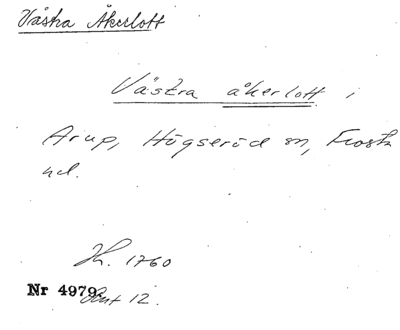 Västra Åkerlott
Västra åkerlott i
Arup, Högseröd sn, Frosta
hd.
Jh. 1760
Nr 4979. Akt 12.